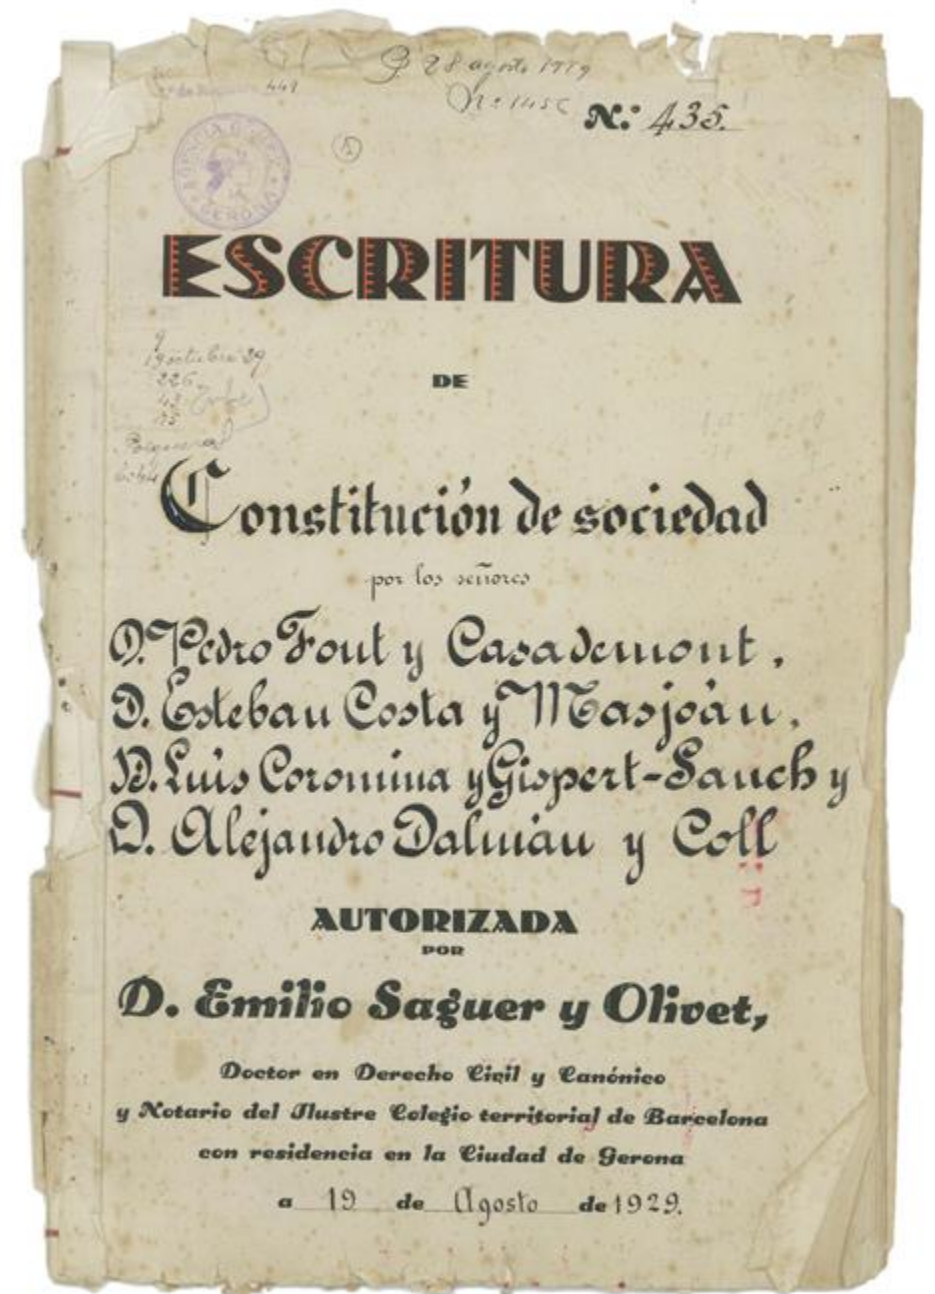 28 agosto 1929
449
N.º 435.
ESCRITURA
19 octubre 29
226
DE
Constitución de sociedad
por los señores
D. Pedro Font y Casademont,
D. Esteban Costa y Masjoán,
D. Luis Coromina y Gispert-Sauch y
D. Alejandro Dalmáu y Coll
AUTORIZADA
POR
D. Emilio Saguer y Olivet,
Doctor en Derecho Civil y Canónico
y Notario del Ilustre Colegio territorial de Barcelona
con residencia en la Ciudad de Gerona
a 19 de Agosto de 1929.